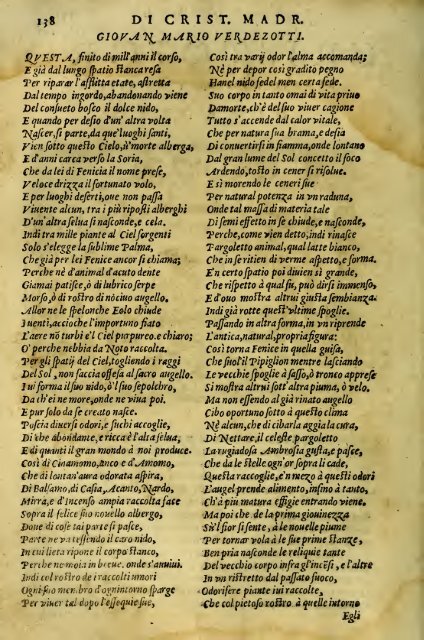 138 DI CRIST. MADR.
GIOVAN MARIO VERDEZOTTI.
QVESTA, finito di mill'anni il corso,
E già dal lungo spatio stanca resa
Per riparar l'afflitta etate, astretta
Dal tempo ingordo, abandonando viene
Del consueto bosco il dolce nido,
E quando per desio d'un'altra volta
Nascer, si parte, da que' luoghi santi,
Vien sotto questo Cielo, ò morte alberga,
E d'anni carca verso la Soria,
Che da lei di Fenicia il nome prese,
Veloce drizza il fortunato volo,
E per luoghi deserti, oue non passa
Viuente alcun, tra i più riposti alberghi
D'un'altra selua si nasconde, e cela.
Indi tra mille piante al Ciel sorgenti
Solo s'elegge la sublime Palma,
Che già per lei Fenice ancor si chiama;
Perche nè d'animal d'acuto dente
Giamai patisce, ò di lubrico serpe
Morso, ò di rostro di nòciuo augello.
Allor ne le spelonche Eolo chiude
I uenti, accioche l'importuno fiato
L'aere nō turbi è'l Ciel purpureo, e chiaro;
O' perche nebbia da Noto raccolta,
Per gli spatij del Ciel, togliendo i raggi
Del Sol, non faccia offesa al sacro augello.
Iui forma il suo nido, ò'l suo sepolcro,
Da ch'ei ne more, onde ne viua poi.
E pur solo da se creato nasce.
Poscia diuersi odori, e succhi accoglie,
Di che abondante, e ricca è l'alta selua,
E di quanti il gran mondo à noi produce.
Così di Cinamomo, anco e d'Amomo,
Che di lontan'aura odorata aspira,
Di Balsamo, di Casia, Acanto, Nardo,
Mirra, e d'Incenso ampia raccolta face
Sopra il felice suo nouello albergo,
Doue di cose tai parte si pasce,
Parte ne va tessendo il caro nido,
In cui lieta ripone il corpo stanco,
Perche ne moia in breue, onde s'auuiui.
Indi col rostro de i raccolti umori
Ogni suo membro d'ogn'intorno sparge
Per viuer tal dopo l'essequie sue,
Così tra varij odor l'alma accomanda;
Nè per depor così gradito pegno
Ha nel nido fedel men certa fede.
Suo corpo in tanto omai di vita priuo
Da morte, ch'è del suo viuer cagione
Tutto s'accende dal calor vitale,
Che per natura sua brama, e desia
Di conuertirsi in fiamma, onde lontano
Dal gran lume del Sol concetto il foco
Ardendo, tosto in cener si risolue.
E sì morendo le ceneri sue
Per natural potenza in vn raduna,
Onde tal massa di materia tale
Di semi effetto in se chiude, e nasconde,
Perche, come vien detto, indi rinasce
Pargoletto animal, qual latte bianco,
Che in se ritien di verme aspetto, e forma.
E'n certo spatio poi diuien sì grande,
Che rispetto à qual fu, può dirsi immenso,
E d'ouo mostra altrui giusta sembianza.
Indi già rotte quest'vltime spoglie.
Passando in altra forma, in vn riprende
L'antica, natural, propria figura:
Così torna Fenice in quella guisa,
Che suol'il Pipiglion mentre lasciando
Le vecchie spoglie à sasso, ò tronco appresse
Si mostra altrui sott'altra piuma, ò velo.
Ma non essendo al già rinato augello
Cibo oportuno sotto à questo clima
Nè alcun, che di cibarla aggia la cura,
Di Nettare, il celeste pargoletto
La rugiadosa Ambrosia gusta, e pasce,
Che da le stelle ogn'or sopra li cade,
Questa raccoglie, e'n mezo à questi odori
L'augel prende alimento, insino à tanto,
Ch'à piu matura effigie entrando viene.
Ma poi che de la prima giouinezza
Sù'l fior si sente, à le nouelle piume
Per tornar vola à le sue prime stanze,
Ben pria nasconde le reliquie tante
Del vecchio corpo infra gl'incēsi, e l'altre
In vn ristretto dal passato fuoco,
Odorifere piante iui raccolte,
Che col pietoso rostro à quelle intorno
Egli